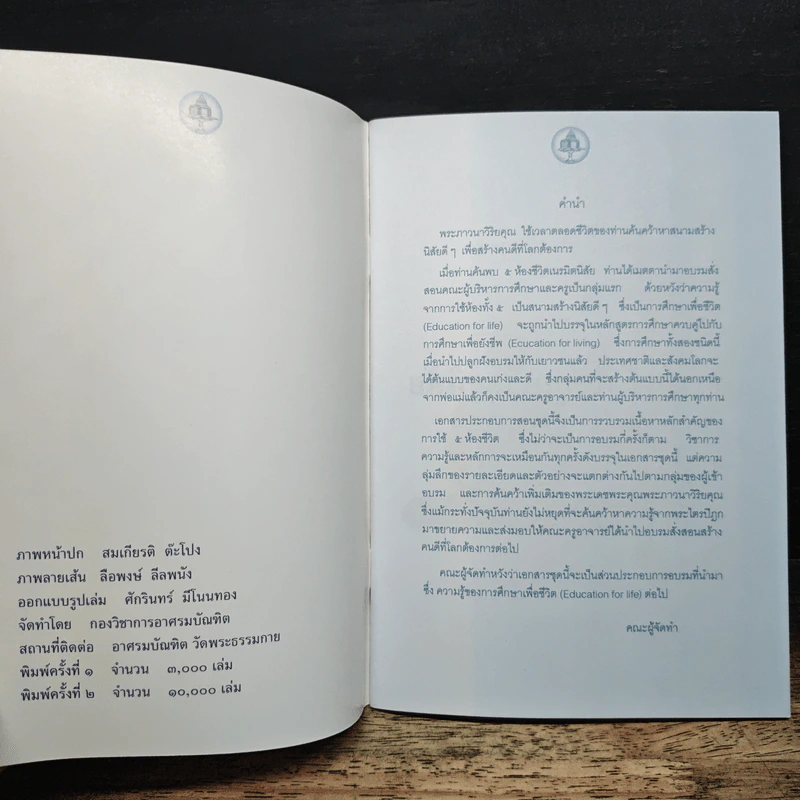 ภาพหน้าปก สมเกียรติ ต๊ะโปง
ภาพลายเส้น ลือพงษ์ ลีลพนัง
ออกแบบรูปเล่ม ศักรินทร์ มีโนนทอง
จัดทำโดย กองวิชาการอาศรมบัณฑิต
สถานที่ติดต่อ อาศรมบัณฑิต วัดพระธรรมกาย
พิมพ์ครั้งที่ ๑ จำนวน ๓,๐๐๐ เล่ม
พิมพ์ครั้งที่ ๒ จำนวน ๑๐,๐๐๐ เล่ม
คำนำ
พระภาวนาวิริยคุณ ใช้เวลาตลอดชีวิตของท่านค้นคว้าหาสนามสร้าง
นิสัยดี ๆ เพื่อสร้างคนดีที่โลกต้องการ
เมื่อท่านค้นพบ ๕ ห้องชีวิตเนรมิตนิสัย ท่านได้เมตตานำมาอบรมสั่ง
สอนคณะผู้บริหารการศึกษาและครูเป็นกลุ่มแรก ด้วยหวังว่าความรู้
จากการใช้ห้องทั้ง ๕ เป็นสนามสร้างนิสัยดี ๆ ซึ่งเป็นการศึกษาเพื่อชีวิต
(Education for life) จะถูกนำไปบรรจุในหลักสูตรการศึกษาควบคู่ไปกับ
การศึกษาเพื่อยังชีพ (Ecucation for living) ซึ่งการศึกษาทั้งสองชนิดนี้
เมื่อนำไปปลูกฝังอบรมให้กับเยาวชนแล้ว ประเทศชาติและสังคมโลกจะ
ได้ต้นแบบของคนเก่งและดี ซึ่งกลุ่มคนที่จะสร้างต้นแบบนี้ได้นอกเหนือ
จากพ่อแม่แล้วก็คงเป็นคณะครูอาจารย์และท่านผู้บริหารการศึกษาทุกท่าน
เอกสารประกอบการสอนชุดนี้จึงเป็นการรวบรวมเนื้อหาหลักสำคัญของ
การใช้ ๕ ห้องชีวิต ซึ่งไม่ว่าจะเป็นการอบรมกี่ครั้งก็ตาม วิชาการ
ความรู้และหลักการจะเหมือนกันทุกครั้งดังบรรจุในเอกสารชุดนี้ แต่ความ
ลุ่มลึกของรายละเอียดและตัวอย่างจะแตกต่างกันไปตามกลุ่มของผู้เข้า
อบรม และการค้นคว้าเพิ่มเติมของพระเดชพระคุณพระภาวนาวิริยคุณ
ซึ่งแม้กระทั่งปัจจุบันท่านยังไม่หยุดที่จะค้นคว้าหาความรู้จากพระไตรปิฎก
มาขยายความและส่งมอบให้คณะครูอาจารย์ได้นำไปอบรมสั่งสอนสร้าง
คนดีที่โลกต้องการต่อไป
คณะผู้จัดทำหวังว่าเอกสารชุดนี้จะเป็นส่วนประกอบการอบรมที่นำมา
ซึ่ง ความรู้ของการศึกษาเพื่อชีวิต (Education for life) ต่อไป
คณะผู้จัดทำ